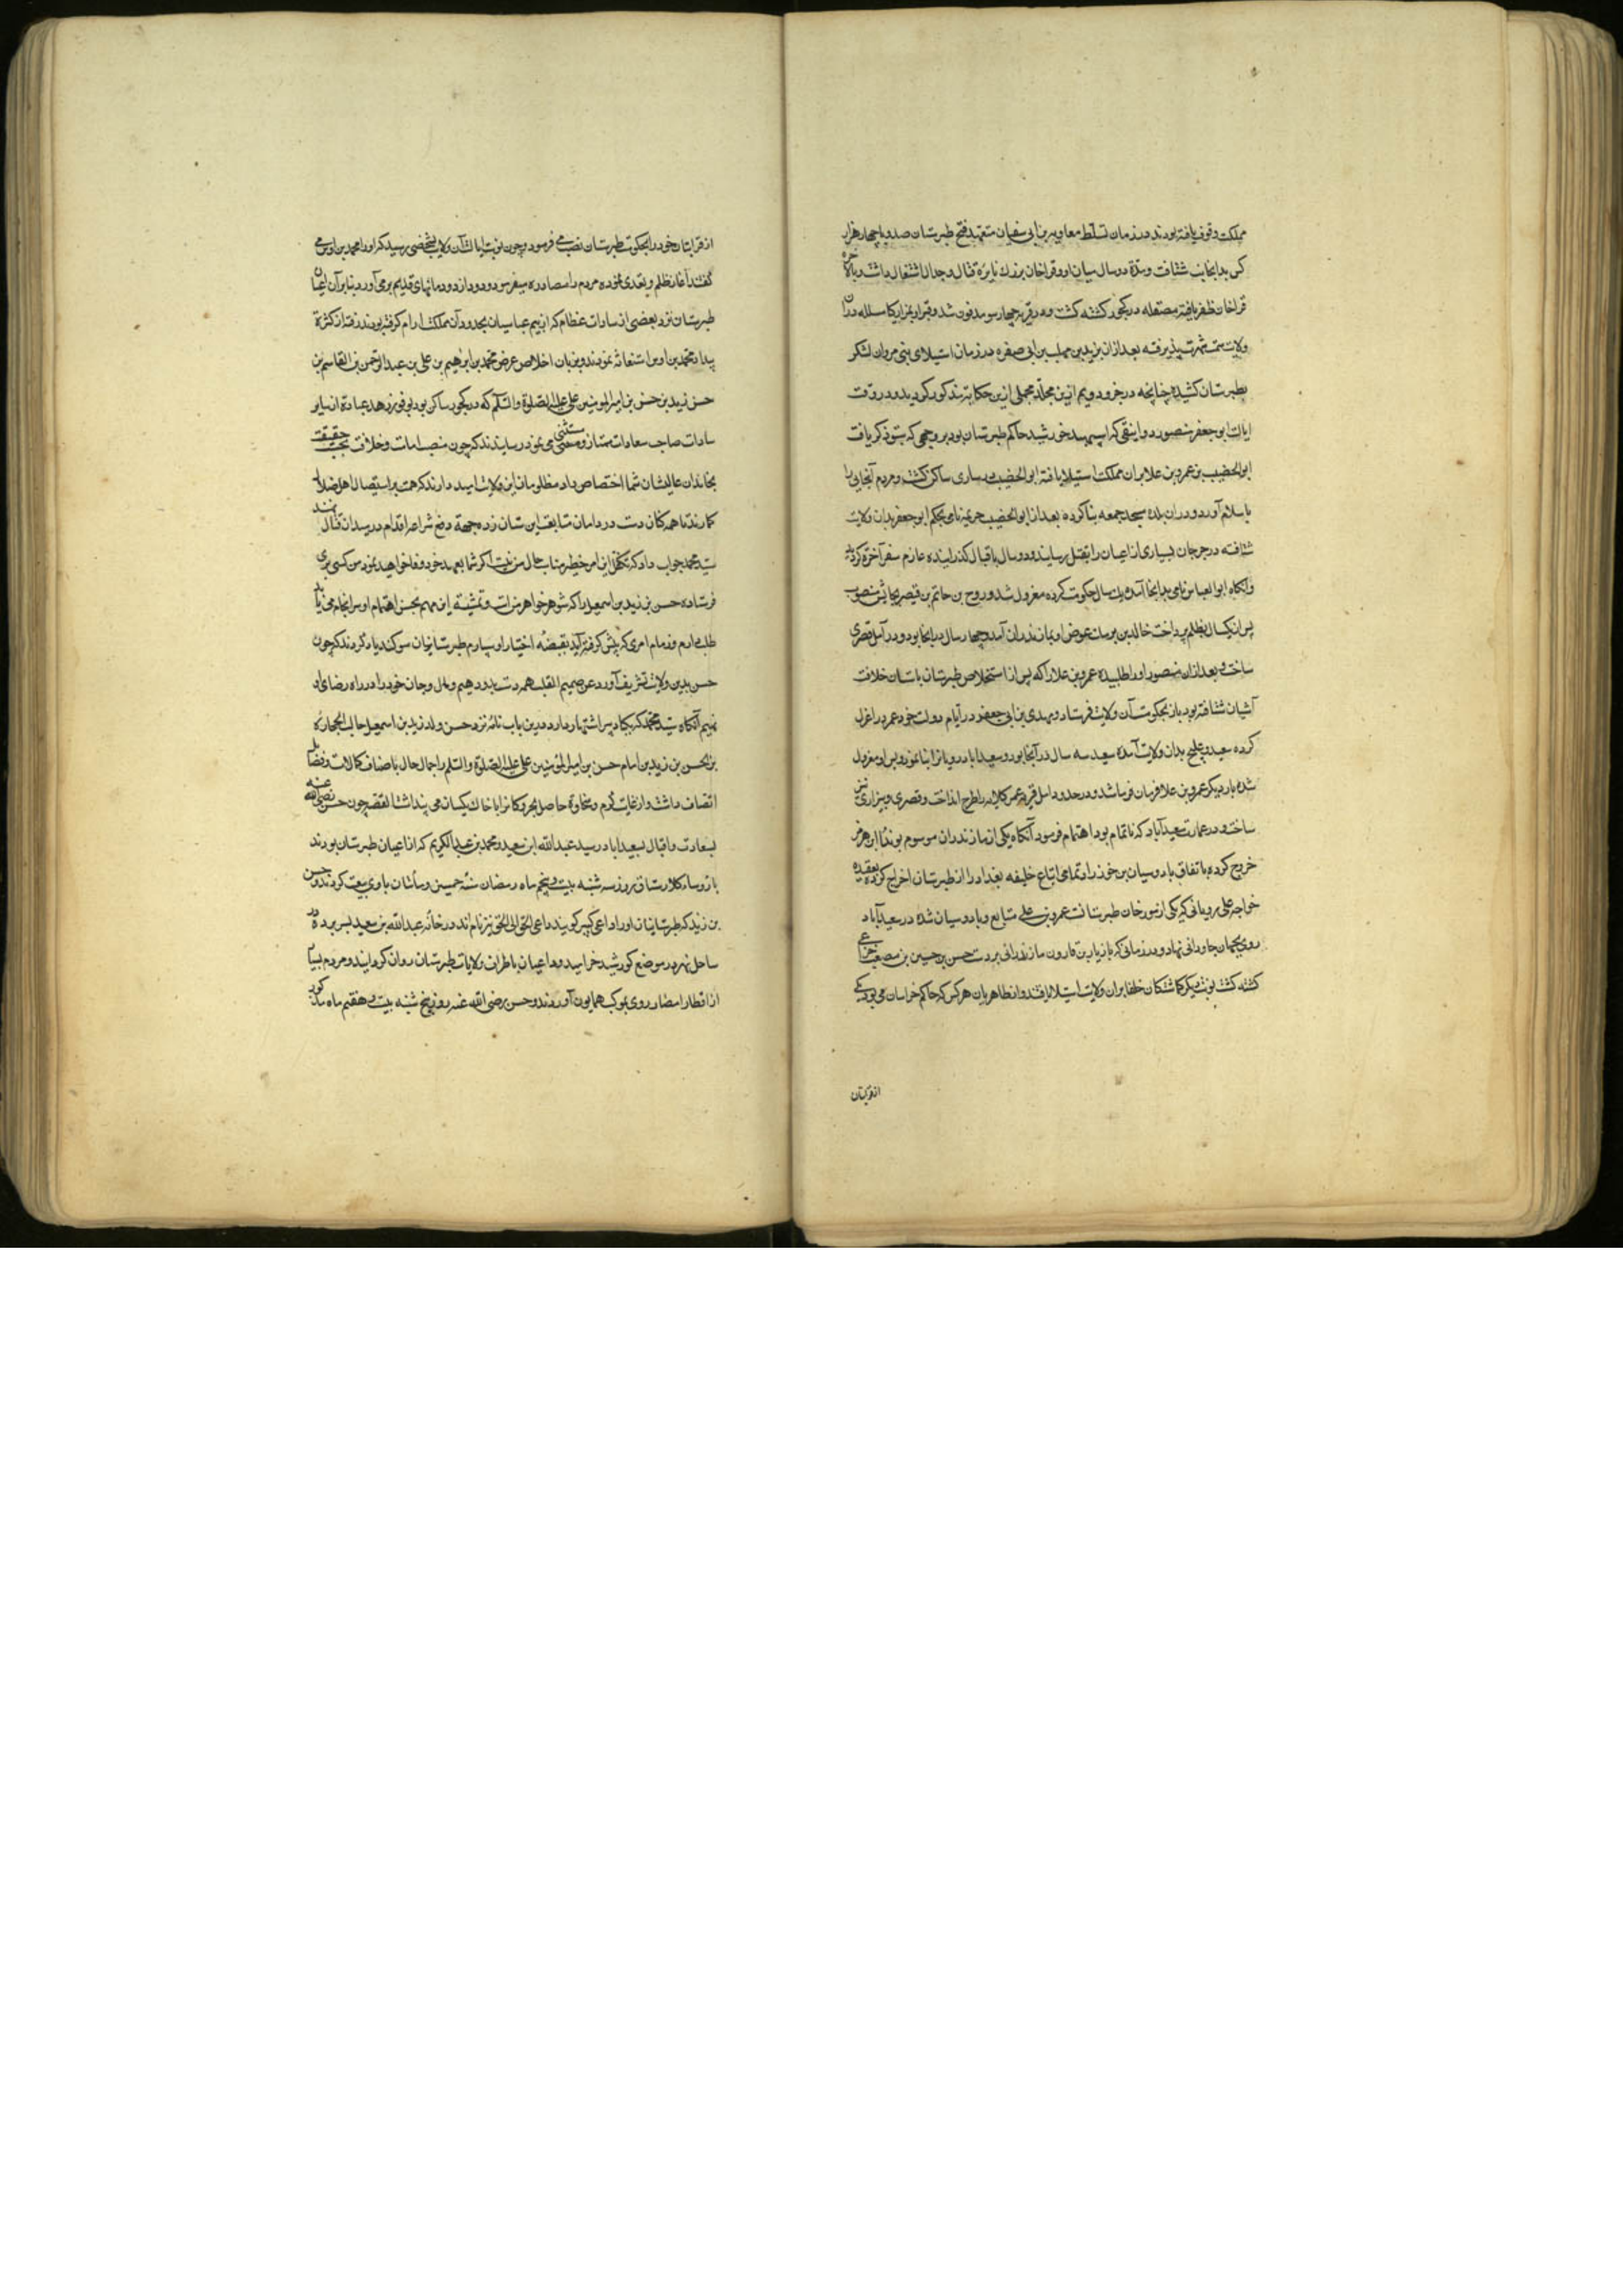 مملکت وقوف یافته بودند در زمان تسلط معاویه بن ابی سفیان متعهد فتح طبرستان شد و با چهار هزار
کس بدانجانب شتافت و مدة دو سال میان او و فرخان بزرک نایره قتال و جدال اشتغال داشت و بالاخره
فرخان ظفر یافته مصقله در کجور کشته کشت و در قریه چهارسو مدفون شد و قبر او بمزار کیا مسلله در ان
ولایت سمت شهرت پذیرفته بعد از ان یزید بن مهلب بن ابی صفره در زمان استیلای بنی مروان لشکر
بطبرستان کشیده چنانچه در جزو دویم ازین مجلد مجملی ازین حکایت مذکور کردید و در وقت
ایالت ابو جعفر منصور دوانیقی که اسپهبد خورشید حاکم طبرستان بود بر وجهی که ستوذکر یافت
ابو الخضیب بن عمرو بن علا بران مملکت استیلا یافته ابو الخضیب در ساری ساکن کشت و مردم آنجایی را
باسلام آورد و در ان بلده مسجد جمعه بنا کرده بعد از ابو الخضیب خزیمه نامی بحکم ابو جعفر بدان ولایت
شتافته در جرجان بسیاری از اعیان را بقتل رسانید و دو سال باقبال کذرانیده عازم سفر آخرة کردید
وانکاه ابو العباس نامی بدانجا آمده یک سال حکومت کرده معزول شد و روح بن حاتم بن قیصر بجایش منصوب
پس از یکسال بظلم پرداخت خالد بن برمک عوض او بمازندران آمد و چهار سال در انجا بود و در آمل قصری
ساخت و بعد از ان منصور او را طلبیده عمرو بن علا را که پس از استخلاص طبرستان باستان خلافت
آشیان شتافته بود باز بحکومت آن ولایت فرستاد و مهدی بن ابی جعفر در آیام دولت خود عمر را عزل
کرده سعید و علج بدان ولایت آمده سعید سه سال در آنجا بود و سعیداباد رویانرا بنا نمود و پس او معزول
شده بار دیکر عمرو بن علا فرمان فرما شد و در حدود آمل قریه عمر کلاته را طرح انداخت و قصری و بازاری نیز
ساخت و در عمارت سعیدآباد که ناتمام بود اهتمام فرمود آنکاه یکی از مازندران موسوم بوندا هرمز
خروج کرده باتفاق بادوسپان بن خورزاد تمامی اتباع خلیفه بغداد را از طبرستان اخراج کرد و بعقیده
خواجه علی رویانی که یکی از مورخان طبرستانست عمرو بن علی متابع دبادوسپان شده در سعیدآباد
روی بجهان جاودانی نهاد و در زمانی که مازیار بن قارون مازندرانی بر دست حسن بن حسین بن مصعب خزاعی
کشته کشت نوبت دیکر کماشتکان خلفا بران ولایت استیلا یافتند و از طاهریان هر کس که حاکم خراسان می بود یکی
از قربتان
از قرابتان خود را بحکومت طبرستان نصب می فرمود و چون نوبت ایالت آن ولایت بشخصی رسید که او را محمد بن اوس می
کفتند آغاز ظلم و تعدی نموده مردم را مصادره میفرمود و دود از دودمانهای قدیم بر می آورد بنا بر آن اعیان
طبرستان نزد بعضی از سادات عظام که از بیم عباسیان بحدود آن مملکت ارام کرفته بودند رفته از کثرة
بیداد محمد بن اوس استغاثه نمودند و بزبان اخلاص عرض محمد بن ابرهیم بن علی بن عبد الرحمن بن القاسم بن
حسن زید بن حسن بن امیر المومنین علی علیه الصلوة والسلام که در کجور ساکن بود بوفور زهد عبادة از سایر
سادات صاحب سعادات ممتاز و مستثنی می نمود رسانیدند که چون منصب امامت و خلافت بحقیقت
بخاندان عالیشان شما اختصاص داد مظلومان این ولایت امید دارند که همت بر استیصال اهل ضلال
کمارند تا همه کنان دست در دامان متابعت ایشان زده جمعة دفع شر اعدا اقدام در میدان قتال نهند
سید محمد جواب داد که تکفل این امر خطیر مناسب حال من نیست اکر شما بعهد خود وفا خواهید نمود من کسی بری
فرستاده حسن بن زید بن اسمعیل را که شوهر خواهر منست و تمشیة این مهم بحسن اهتمام او سرانجام می یابد
طلب دارم و زمام امری که پیش کرفته آید بقبضه اختیار او سپارم طبرستانیان سوکند یاد کردند که چون
حسن بدین ولایت تشریف آورد عن صمیم القلب همه دست بدو دهیم و مال و جان خود را در راه رضای او
نهیم آنکاه سید محمد که بکیا دبیر اشتهار دارد درین باب نامه نزد حسن ولد زید بن اسمعیل حالب الحجاره
بن الحسن بن زید بن امام حسن بن امیر المؤمنین علی علیه الصلوة والسلم راجمال حال باصناف کمالات و فضایل
اتصاف داشت و از غایت کرم و سخاوة حاصل بحر و کانرا با خاک یکسان می پنداشت القصه چون حسن رضی الله عنه
بسعادت و اقبال بسعیداباد رسید عبد الله ابن سعید و محمد بن عبد الکریم که از اعیان طبرستان بودند
با روساء کلارستاق بروز سه شنبه بیست و پنجم ماه رمضان سنه خمسین و مائتان با وی بیعت کردند و حسن
بن زید که طبرستانیان او را داعی کبیر کویند داعی الخلق الی الحق نیز نامند در خانه عبد الله بن سعید بسر برده در
ساحل نهر در موضع کورشید خرامید و داعیان باطراف ولایات طبرستان روان کردایند و مردم بسیار
از اقطار امصار روی بموکب همایون آوردند و حسن رضی الله عنه روز پنج شنبه بیست و هفتم ماه مذکور